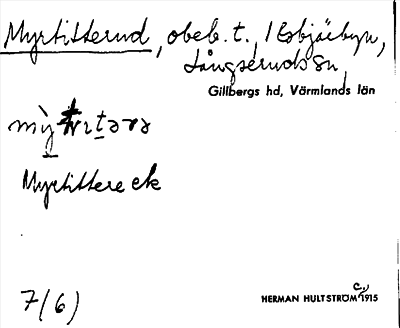 Myrtitterud, obeb. t. Esbjörbyn,
Långseruds sn,
Gillbergs hd, Värmlands län
Myrtittereck
7(6)
HERMAN HULTSTRÖM c. 1915